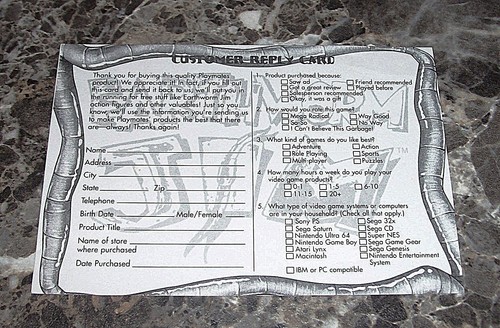 CUSTOMER REPLY CARD
Thank you for buying this quality Playmates
product! We appreciate it! In fact, if you fill out
this card and send it back to us, we'll put you in
the running for free stuff like Earthworm Jim
action figures and other valuables! Just so you
know, we'll use the information you're sending us
to make Playmates' products the best that there
are—always! Thanks again!
Name
Address
City
State Zip
Telephone
Birth Date Male/Female
Product Title
Name of store
where purchased
Date Purchased
1. Product purchased because:
Saw ad Friend recommended
Got a great review Played before
Salesperson recommended
Okay, it was a gift
2. How would you rate this game?
Mega Radical Way Good
So-So No Way
I Can't Believe This Garbage!
3. What kind of games do you like best?
Adventure Action
Role Playing Sports
Multi-player Puzzles
4. How many hours a week do you play your
video game products?
0-1 1-5 6-10
11-15 20+
5. What type of video game systems or computers
are in your household? (Check all that apply.)
Sony PS Sega 32x
Sega Saturn Sega CD
Nintendo Ultra 64 Super NES
Nintendo Game Boy Sega Game Gear
Atari Lynx Sega Genesis
Macintosh Nintendo Entertainment
System
IBM or PC compatible
TM